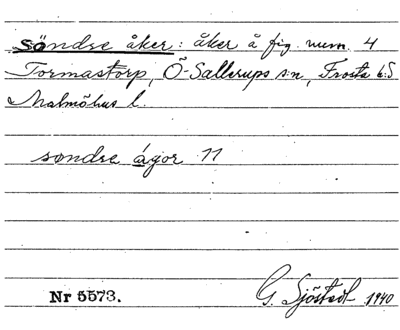 Söndre åker: åker å fig. num. 4
Tormastorp, Ö-Sallerups sn, Frosta
Malmöhus l.
søndre ágor 11
Nr 5573. G. Sjöstedt 1940